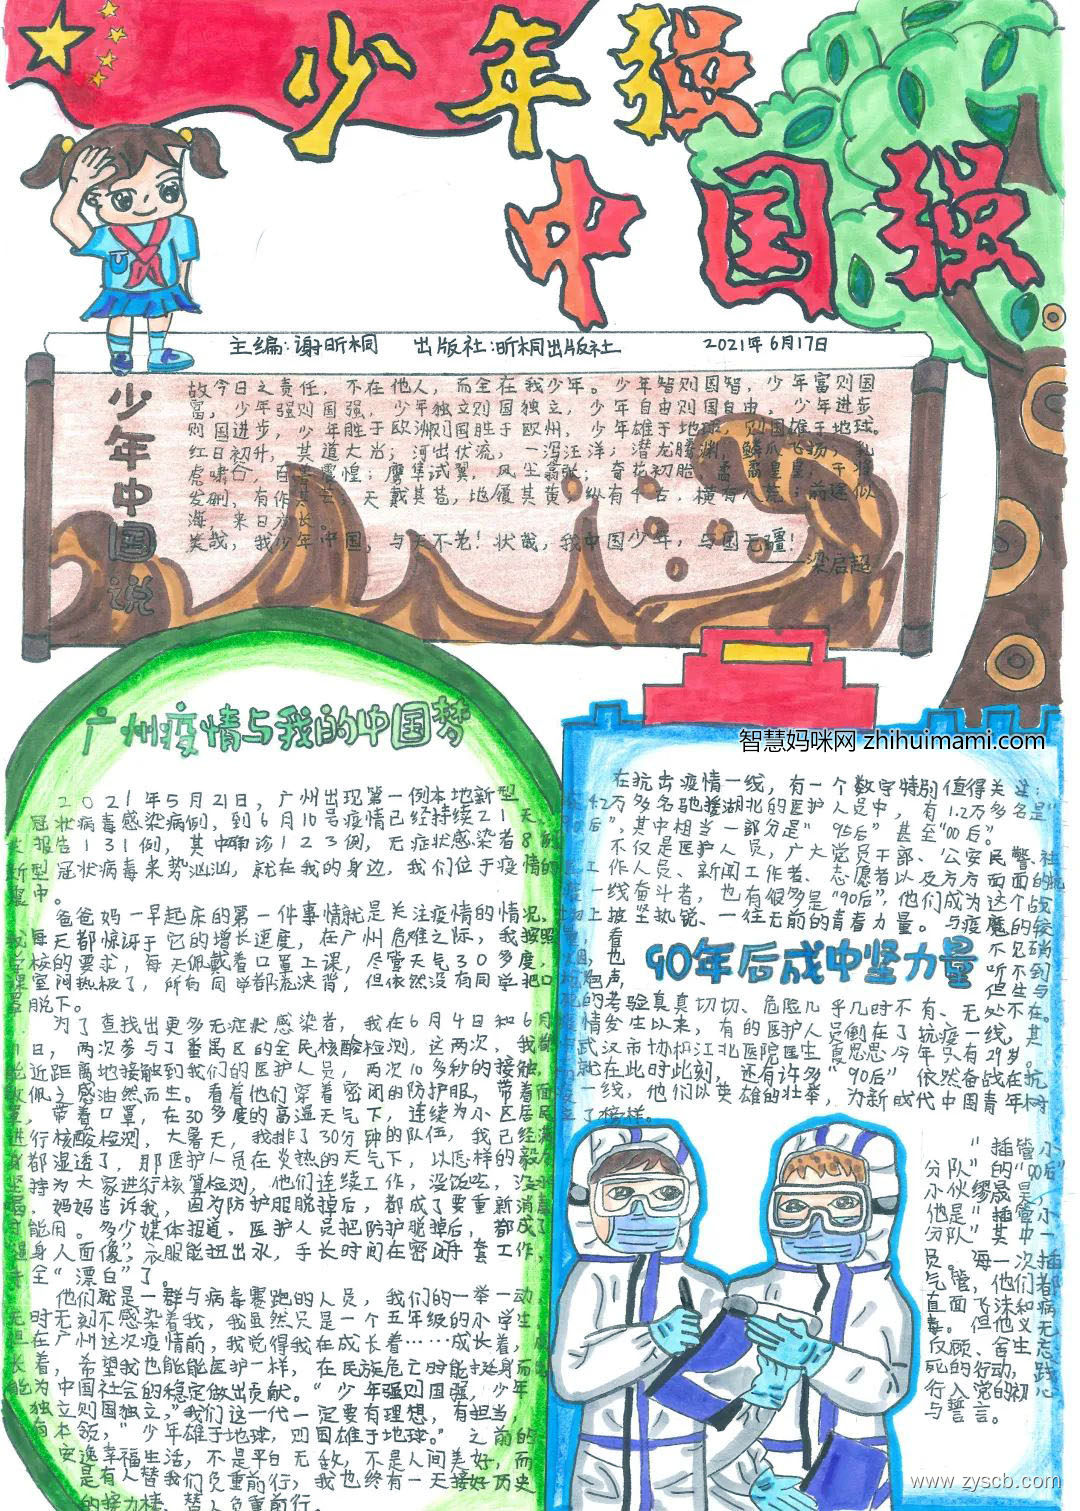 少年强
中国强
主编:谢昕桐 出版社:昕桐出版社 2021年6月17日
少年中国说
故今日之责任，不在他人，而全在我少年。少年智则国智，少年富则国
富，少年强则国强，少年独立则国独立，少年自由则国自由，少年进步
则国进步，少年胜于欧洲则国胜于欧州，少年雄于地球，则国雄于地球。
红日初升，其道大光；河出伏流，一泻汪洋；潜龙腾渊，鳞爪飞扬；乳
虎啸谷，百兽震惶；鹰隼试翼，风尘翕张；奇花初胎，矞矞皇皇；干将
发硎，有作其芒；天戴其苍，地履其黄；纵有千古，横有八荒；前途似
海，来日方长。
美哉，我少年中国，与天不老！状哉，我中国少年，与国无疆！
——梁启超
广州疫情与我的中国梦
2021年5月21日，广州出现第一例本地新型
冠状病毒感染病例，到6月10号疫情已经持续21天，
报告131例，其中确诊123例，无症状感染者8例
新型冠状病毒来势汹汹，就在我的身边，我们位于疫情的
中。
爸爸妈一早起床的第一件事情就是关注疫情的情况，
我每天都惊讶于它的增长速度，在广州危难之际，我按照
学校的要求，每天佩戴着口罩上课，尽管天气30多度，
课室闷热极了，所有同学都流浃背，但依然没有同学把口
罩脱下。
为了查找出更多无症状感染者，我在6月4日和6月
日，两次参与了番禺区的全民核酸检测，这两次，我都
能近距离地接触到我们的医护人员，两次10多秒的接触，
敬佩之感油然而生。看着他们穿着密闭的防护服，带着面
罩，带着口罩，在30多度的高温天气下，连续为小区居民
进行核酸检测，大暑天，我排了30分钟的队伍，我已经满
身都湿透了，那医护人员在炎热的天气下，以怎样的毅力
坚持为大家进行核算检测，他们连续工作，没饭吃，没水
喝，妈妈告诉我，因为防护服脱掉后，都成了要重新消毒
才能用。多少媒体报道，医护人员把防护脱掉后，都成了
浑身人面像，衣服能扭出水，手长时间在密闭手套工作，
完全“漂白”了。
他们就是一群与病毒赛跑的人员，我们的一举一动
无时无刻不感染着我，我虽然只是一个五年级的小学生，
但在广州这次疫情前，我觉得我在成长着……成长着，成
长着，希望我也能能医护一样，在民族危亡时能挺身而出
能为中国社会的稳定做出贡献。“少年强则国强，少年
独立则国独立，”我们这一代一定要有理想，有担当，
有本领，“少年雄于地球，则国雄于地球。”之前的
安逸幸福生活，不是平白无敌，不是人间美好，而
是有人替我们负重前行，我也终有一天接好历史
的接力棒，替人负重前行。
智慧妈咪网 zhihuimami.com
在抗击疫情一线，有一个数字特别值得关注：
42万多名驰援湖北的医护人员中，有1.2万多名是“
90后”，其中相当一部分是“95后”甚至“00后”。
不仅是医护人员，广大党员干部、公安民警、社
区工作人员、新闻工作者、志愿者以及方方面面的抗
疫一线奋斗者，也有很多是“90后”，他们成为这个战
场上披坚热锐、一往无前的青春力量。与疫魔的较
量，看不见硝
烟，也听不到
炮声，但生与
死的考验真真切切、危险几乎几时不有、无处不在。
疫情发生以来，有的医护人员倒在了抗疫一线，其
中武汉市协和江北医院医生夏思思今年只有29岁。
就在此时此刻，还有许多“90后”依然奋战在抗
疫一线，他们以英雄的壮举，为新时代中国青年树
立了榜样。
90年后成中坚力量
“插管小
分队”的“00后”
小伙缪晟昊，
他是“插管小
分队”其中一
员。每一次插
气管，他们都
直面飞沫和病
毒。但他义无
反顾、舍生忘
死的行动，践
行入党的初心
与誓言。
www.zyscb.com